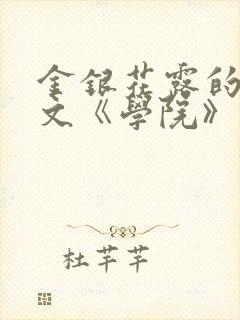 金银花露的
文《學院》
杜芊芊